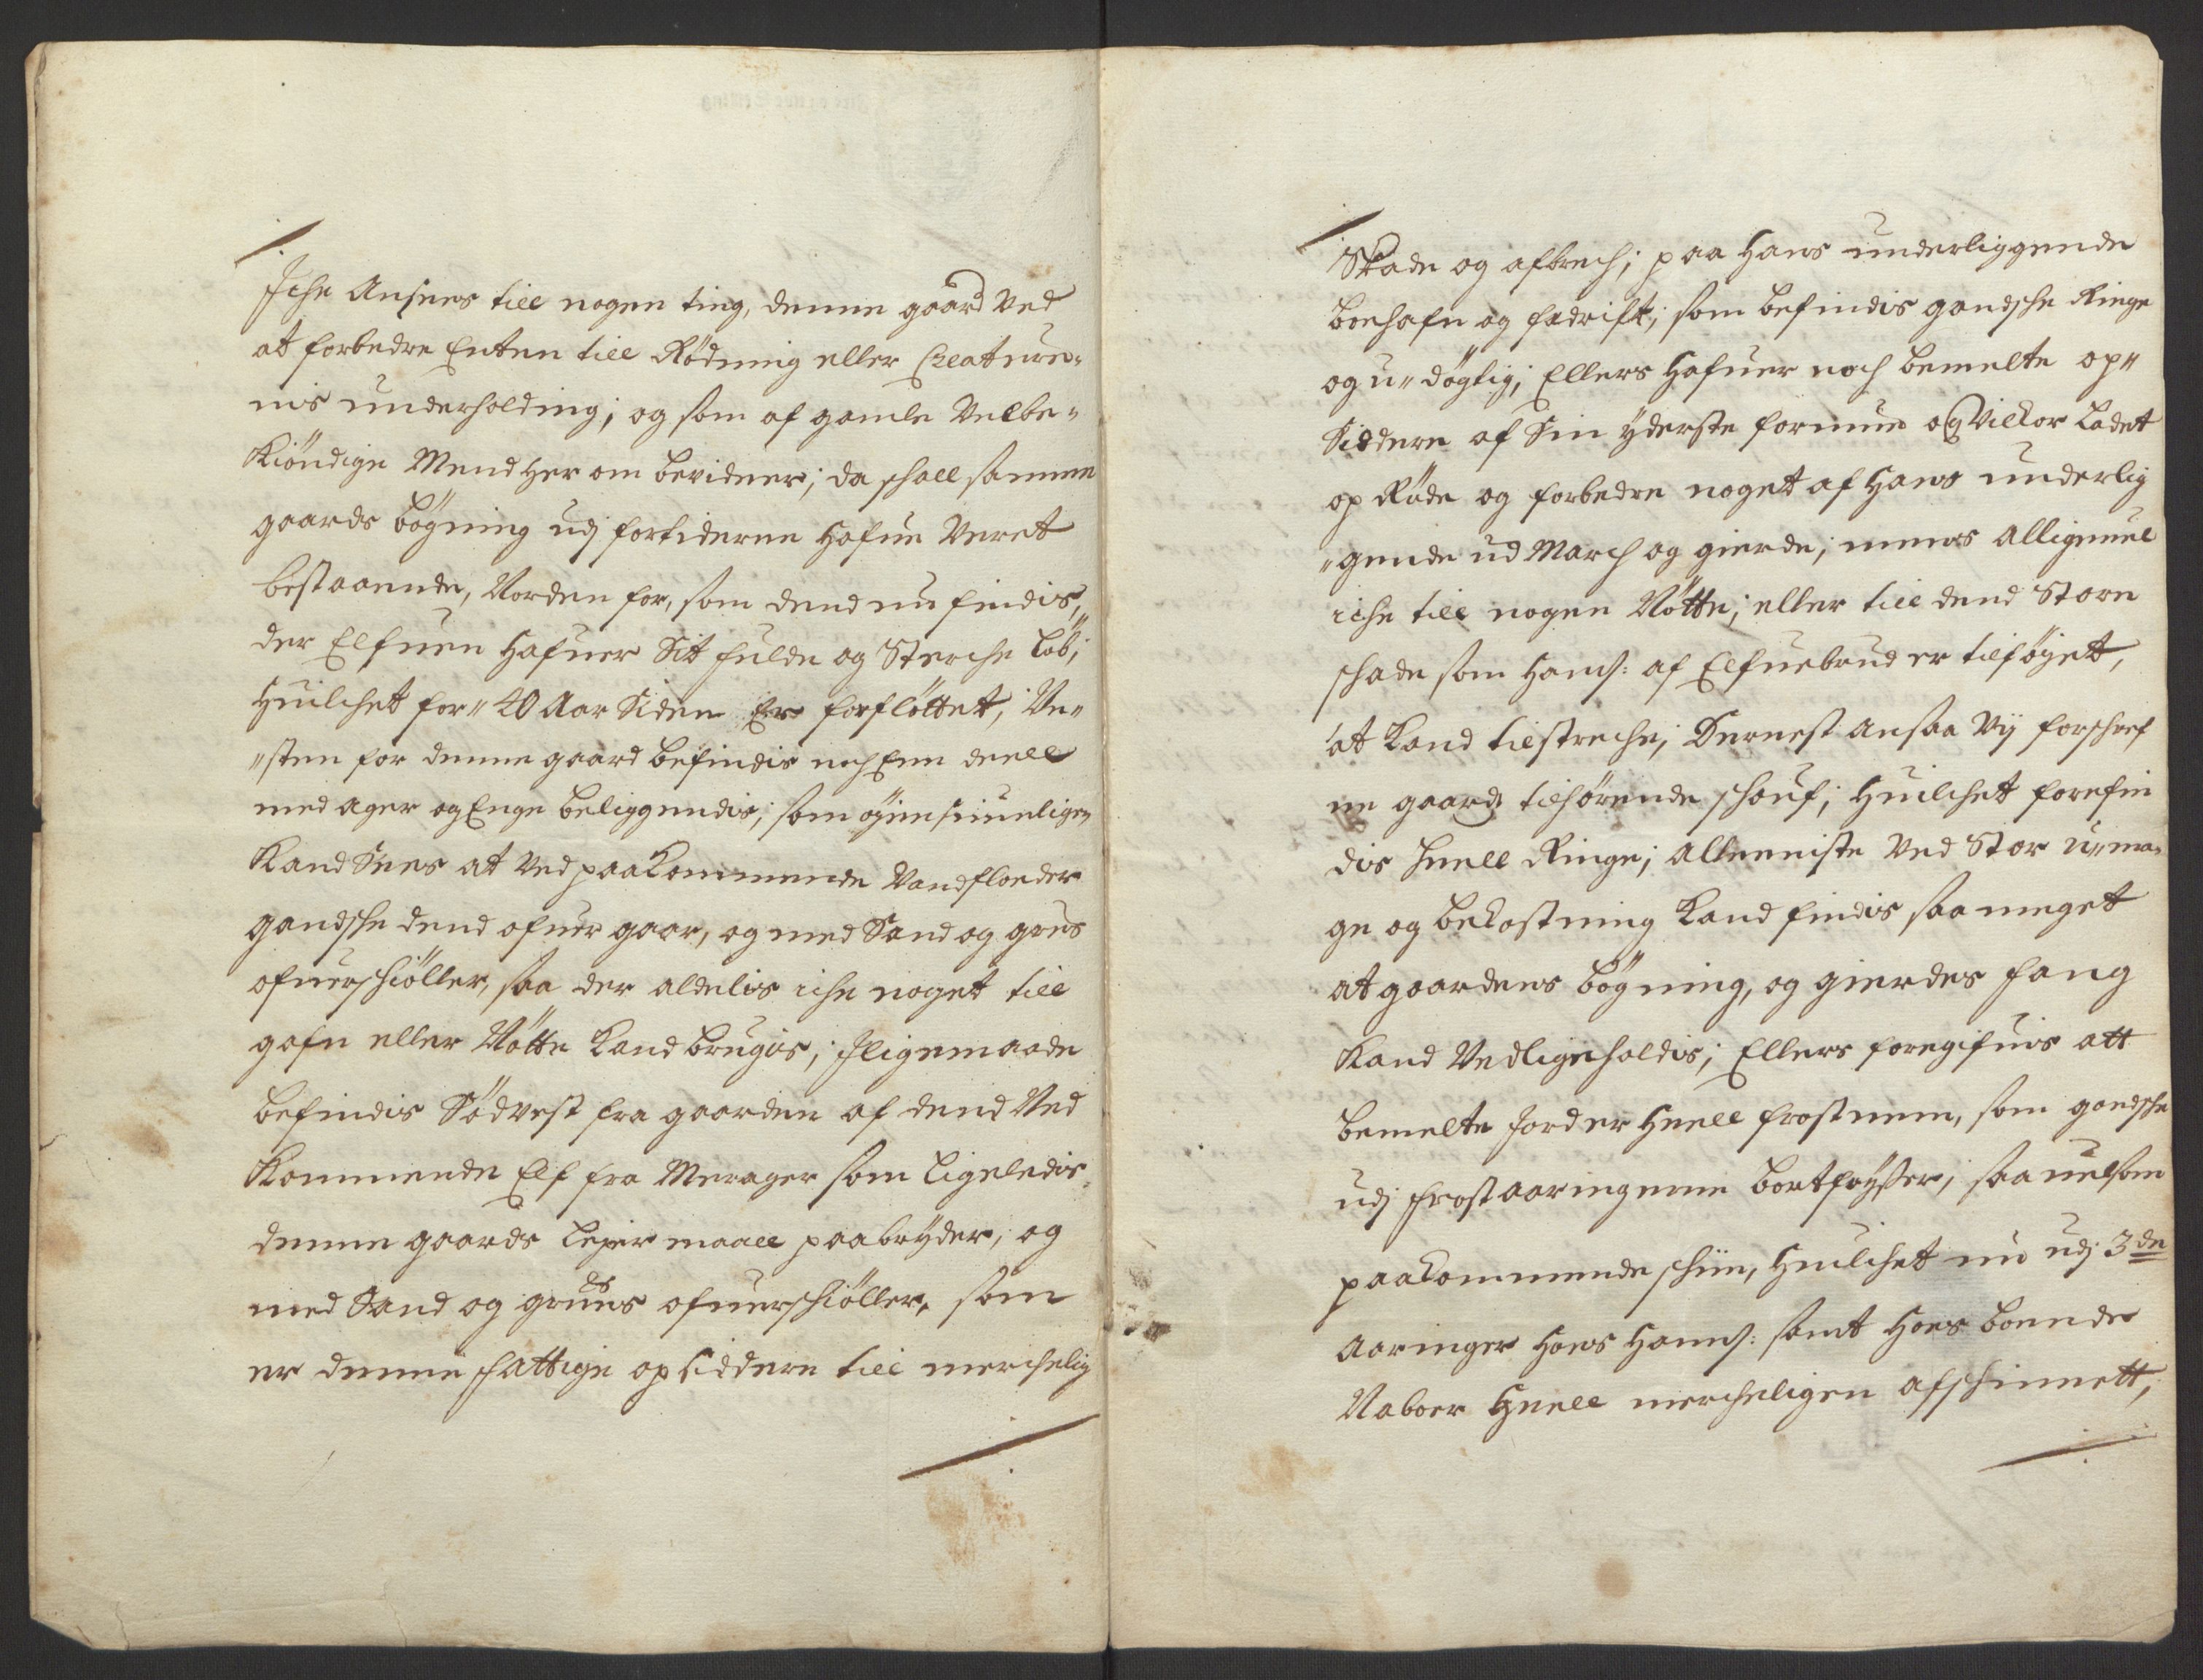 Iche Ansees till nogen ting, denne gaard ved
at forbedre Enten till Rödning eller Creature-
nis underholding; og som af gamle Velbe-
Kiöndige Mend her om bevidner; da schall samme
gaards bögning udj fortiderne hafue Veret
bestaaende, Norden for, som dend nu findis,
der Elfuen hafuer Sit fulde og Sterche löb,
huilchet for 40 Aar Siden Er forflöttet; Ve-
sten for denne gaard befindis noch Een deell
med ager og Enge beliggendis; som öjensiunligen
Kand Sees at ved paakommende Vandfloeder
gandsche dend ofuer gaar, og med Sand og grus
ofuerschiöller, saa der aldelis iche noget till
gafn eller Nötte Kand brugis; Jligemaade
befindis Södvest fra gaarden af dend Ved
Kommende Elf fra Merager som Ligeledis
denne gaards Leyermaall paabryder, og
med Sand og gruus ofuerschiöller, som
er denne fattige opsiddere till merchelig
Skade og afbrech; paa hans underliggende
boehafn og fædrift; som befindis gandsche Ringe
og u-dögtig; Ellers hafuer noch bemelte op-
Siddere af Sin yderste formue og Vilkor ladet
op Röde og forbedre noget af hans underlig
gende ud March og gierde; mens alligeuel
iche till nogen Nötte; eller till dend Store
schade som hans: af Elfuebrud er tilföyet,
at Kand tilstreche; Dernest ansaa Vij forschref
ne gaards tilhörende schouf; huilchet forefin
dis heell Ringe; alleeniste ved Stor u-ma-
ge og bekostning Kand findis saa meget
at gaardens bögning, og gierdes fang
Kand Vedligeholdis; Ellers foregifuis att
bemelte Jord er heell frostnem, som gandsche
udj frost aaringerne bortfryser; saa uelsom
paakommende schiin, huilchet nu udj 3de
aaringer hoes hanns: samt hoes boende
Naboer heell mercheligen afschinnett,